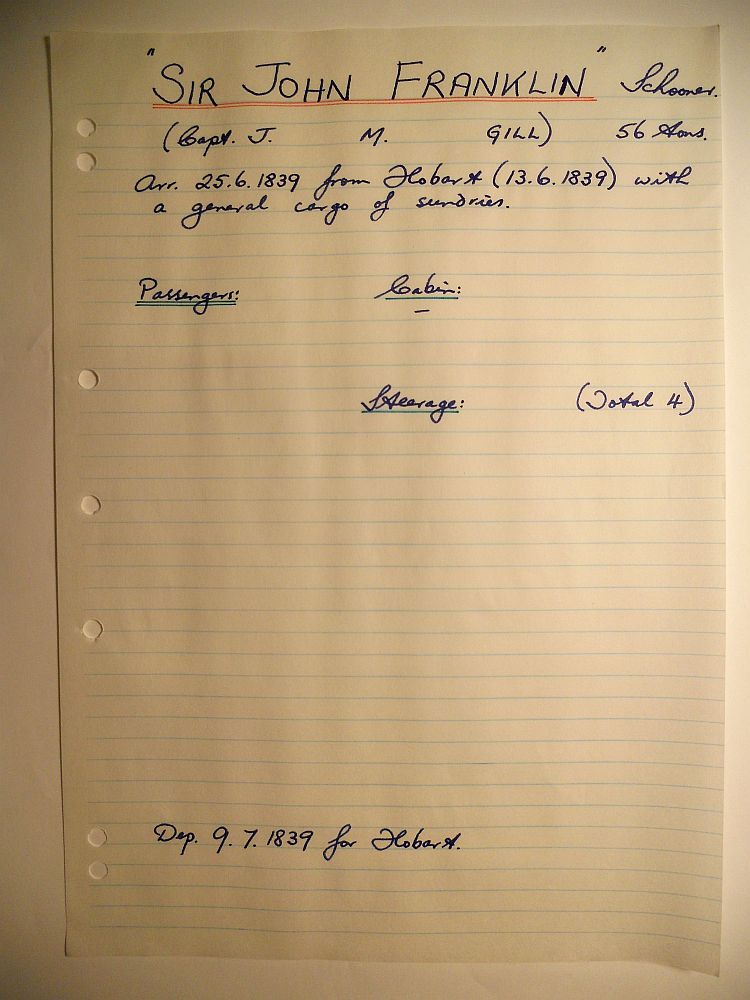 "SIR JOHN FRANKLIN" Schooner.
(Capt. J. M. GILL) 56 tons.
Arr. 25.6.1839 from Hobart (13.6.1839) with
a general cargo of sundries.
Passengers: Cabin:
—
Steerage: (Total 4)
Dep. 9.7.1839 for Hobart.